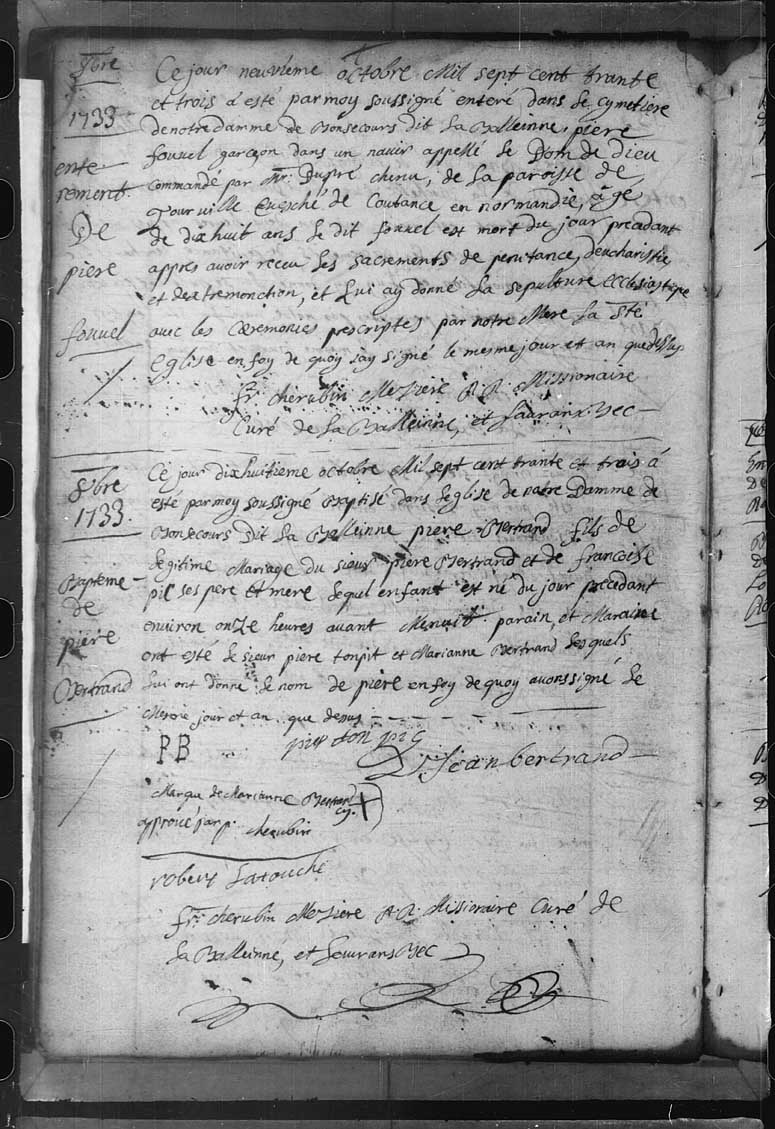 8bre
1733
ente
rement
De
piere
fouuel
Ce jour neuvieme octobre Mil sept cent trante
et trois a esté par moy soussigné enteré dans le cymetiere
de notre Damme de Bonsecours dit la Balleinne, piere
fouuel garçon dans un navir appellé le Dom de Dieu
commandé par Mr. Dupré chenu, de la paroisse de
Tourville Evesché de Coutance en normandie, agé
de dix huit ans le dit fouuel est mort du jour precedant
appres avoir receu les sacrements de penitance, deucharistie,
et dextremonction, et lui ay donné la sepulture Ecclesiastique
avec les Ceremonies prescriptes par notre Mere la Ste
Eglise en foy de quoy jay signé le mesme jour et an que dessus
fr. cherubin Meziere R.R. Missionaire
Curé de la Balleinne, et fauranx Bec
8bre
1733.
Bapteme
de
piere
Bertrand
Ce jour dixhuitieme octobre Mil sept cent trante et trois á
esté par moy soussigné Baptisé dans leglise de notre Damme de
Bonsecours dit la Balleinne piere Bertrand fils de
legitime Mariage du sieur piere Bertrand et de francoise
pil ses pere et mere lequel enfant est né du jour precedant
environ onze heures avant Menuit. parain, et Maraine
ont esté le sieur piere tonpit et Marianne Bertrand lesquels
lui ont donné le nom de piere en foy de quoy avons signé le
Meme jour et an que dessus
PB
Jean bertrand
Marque de Marianne Bertrand +
approuvé par p. cherubin
robert Latouche
fr. cherubin Meziere R.R. Missionaire Curé de
la Balleinne, et fourans Bec